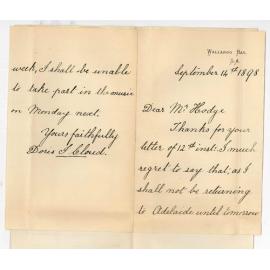 WALLAROO BAY,
S.A.
September 14th 1898
Dear Mr Hodge
Thanks for your
letter of 12th inst: I much
regret to say that, as I
shall not be returning
to Adelaide until tomorrow
week, I shall be unable
to take part in the music
on Monday next.
Yours faithfully
Doris I. Cloud.